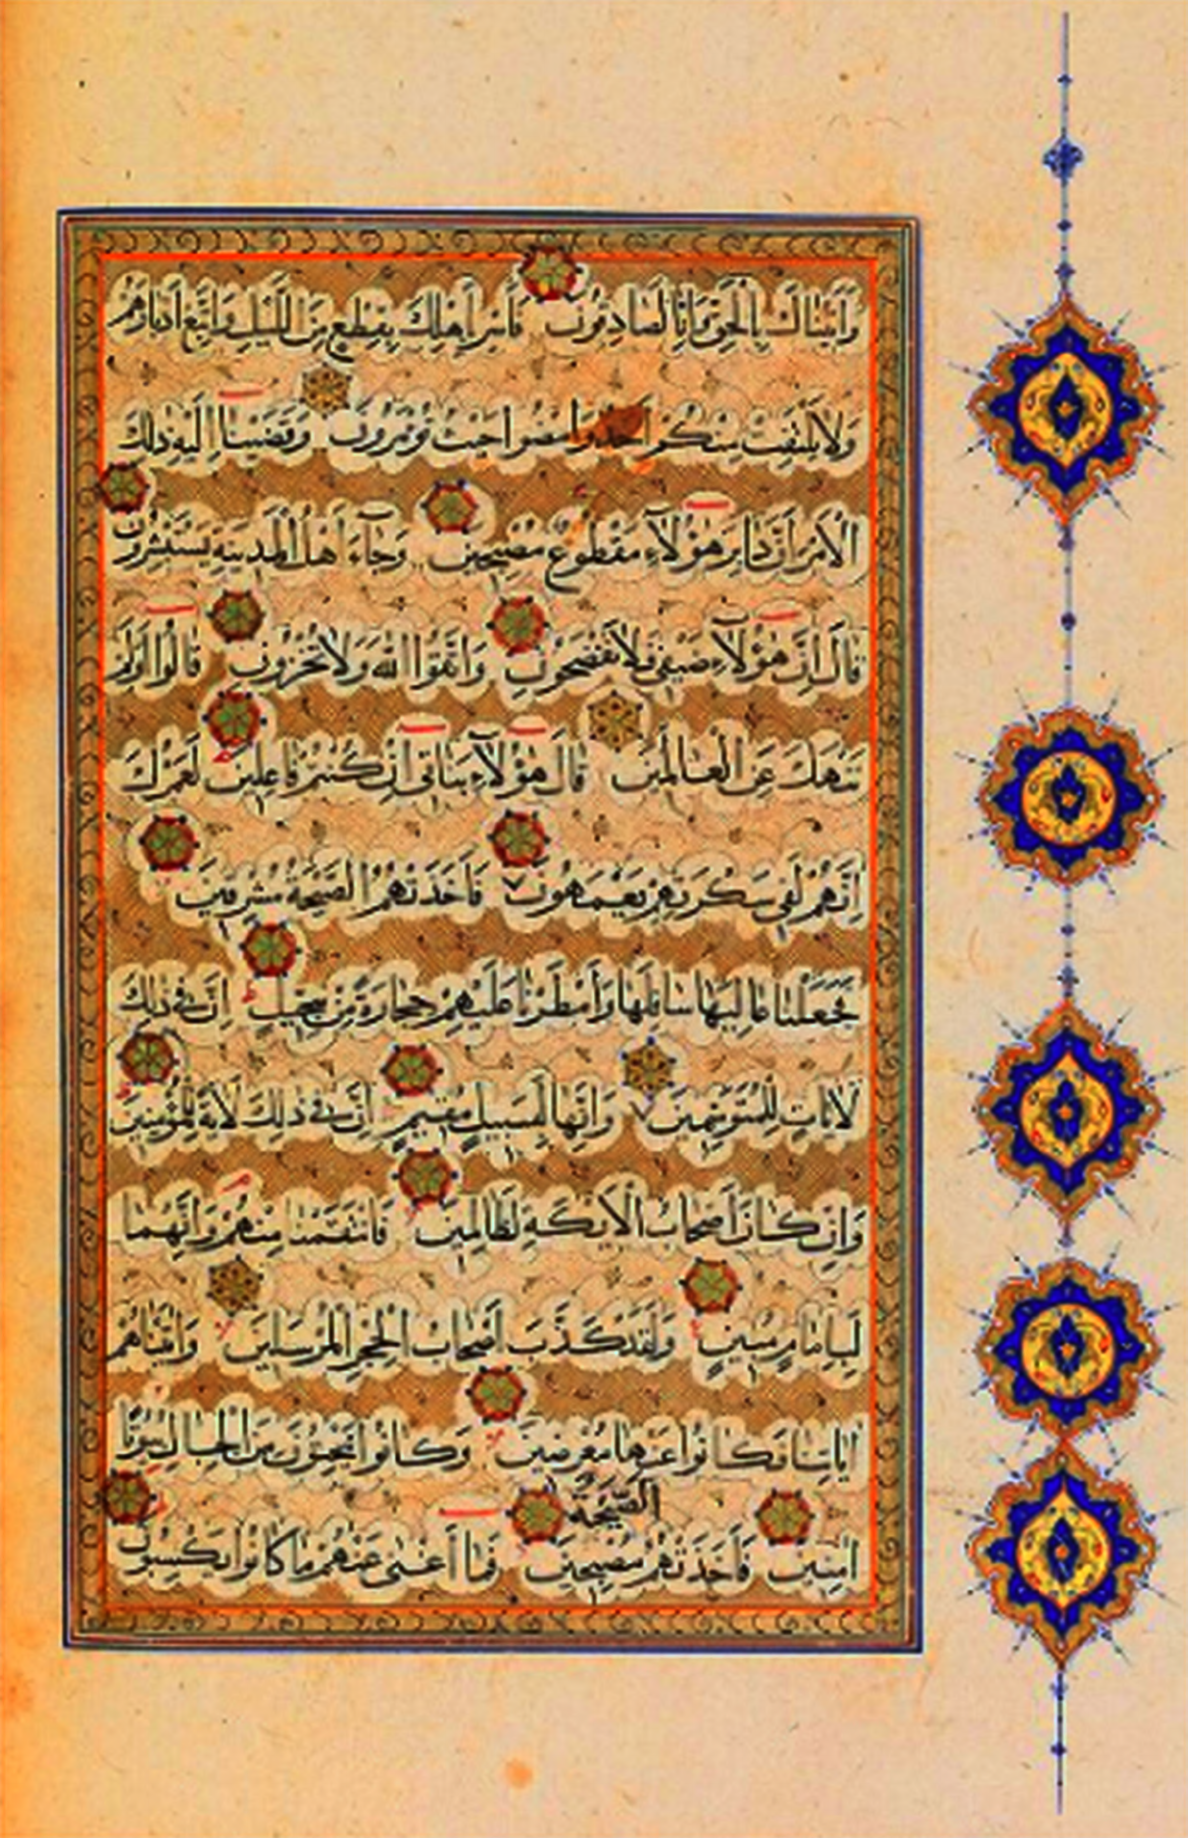 وَأَتَيْنَاكَ بِالْحَقِّ وَإِنَّا لَصَادِقُونَ فَأَسْرِ بِأَهْلِكَ بِقِطْعٍ مِنَ اللَّيْلِ وَاتَّبِعْ أَدْبَارَهُمْ
وَلَا يَلْتَفِتْ مِنْكُمْ أَحَدٌ وَامْضُوا حَيْثُ تُؤْمَرُونَ وَقَضَيْنَا إِلَيْهِ ذَلِكَ
الْأَمْرَ أَنَّ دَابِرَ هَؤُلَاءِ مَقْطُوعٌ مُصْبِحِينَ وَجَاءَ أَهْلُ الْمَدِينَةِ يَسْتَبْشِرُونَ
قَالَ إِنَّ هَؤُلَاءِ ضَيْفِي فَلَا تَفْضَحُونِ وَاتَّقُوا اللَّهَ وَلَا تُخْزُونِ قَالُوا أَوَلَمْ
نَنْهَكَ عَنِ الْعَالَمِينَ قَالَ هَؤُلَاءِ بَنَاتِي إِنْ كُنْتُمْ فَاعِلِينَ لَعَمْرُكَ
إِنَّهُمْ لَفِي سَكْرَتِهِمْ يَعْمَهُونَ فَأَخَذَتْهُمُ الصَّيْحَةُ مُشْرِقِينَ
فَجَعَلْنَا عَالِيَهَا سَافِلَهَا وَأَمْطَرْنَا عَلَيْهِمْ حِجَارَةً مِنْ سِجِّيلٍ إِنَّ فِي ذَلِكَ
لَآيَاتٍ لِلْمُتَوَسِّمِينَ وَإِنَّهَا لَبِسَبِيلٍ مُقِيمٍ إِنَّ فِي ذَلِكَ لَآيَةً لِلْمُؤْمِنِينَ
وَإِنْ كَانَ أَصْحَابُ الْأَيْكَةِ لَظَالِمِينَ فَانْتَقَمْنَا مِنْهُمْ وَإِنَّهُمَا
لَبِإِمَامٍ مُبِينٍ وَلَقَدْ كَذَّبَ أَصْحَابُ الْحِجْرِ الْمُرْسَلِينَ وَآتَيْنَاهُمْ
آيَاتِنَا فَكَانُوا عَنْهَا مُعْرِضِينَ وَكَانُوا يَنْحِتُونَ مِنَ الْجِبَالِ بُيُوتًا
الصَّيْحَةُ
آمِنِينَ فَأَخَذَتْهُمُ مُصْبِحِينَ فَمَا أَغْنَى عَنْهُمْ مَا كَانُوا يَكْسِبُونَ